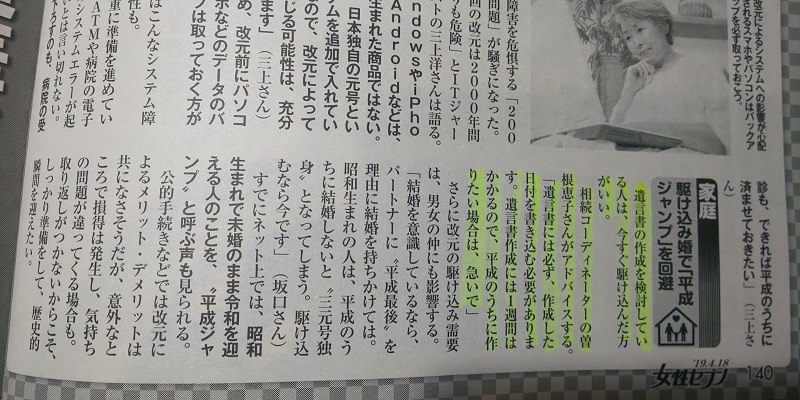 改元によるシステムへの影響が心配
されるスマホやパソコンはバックア
ップを必ず取っておこう。
障害を危惧する「200
問題」が騒ぎになった。
回の改元は2000年問
りも危険」とITジャー
ストの三上洋さんは語る。
ndowsやiPho
Androidなどは、
生まれた商品ではない。
日本独自の元号とい
ムを追加で入れてい
ので、改元によって
じる可能性は、充分
ます」(三上さん)
め、改元前にパソコ
ホなどのデータのバ
プは取っておく方が
はこんなシステム障
性も。
重に準備を進めてい
ATMや病院の電子
システムエラーが起
いとは言い切れない。
ろすのも、病院の受
診も、できれば平成のうちに
済ませておきたい」(三上さ
ん)
家庭
駆け込み婚で「平成
ジャンプ」を回避
遺言書の作成を検討してい
る人は、今すぐ駆け込んだ方
がいい。
相続コーディネーターの曽
根恵子さんがアドバイスする。
「遺言書には必ず、作成した
日付を書き込む必要がありま
す。遺言書作成には1週間は
かかるので、平成のうちに作
りたい場合は、急いで」
さらに改元の駆け込み需要
は、男女の仲にも影響する。
「結婚を意識しているなら、
パートナーに〝平成最後〟を
理由に結婚を持ちかけては。
昭和生まれの人は、平成のう
ちに結婚しないと〝三元号独
身〟となってしまう。駆け込
むなら今です」(坂口さん)
すでにネット上では、昭和
生まれで未婚のまま令和を迎
える人のことを、〝平成ジャ
ンプ〟と呼ぶ声も見られる。
公的手続きなどでは改元に
よるメリット・デメリットは
共になさそうだが、意外なと
ころで損得は発生し、気持ち
の問題が違ってくる場合も。
取り返しがつかないからこそ、
しっかり準備をして、歴史的
瞬間を迎えたい。
'19.4.18
女性セブン
140